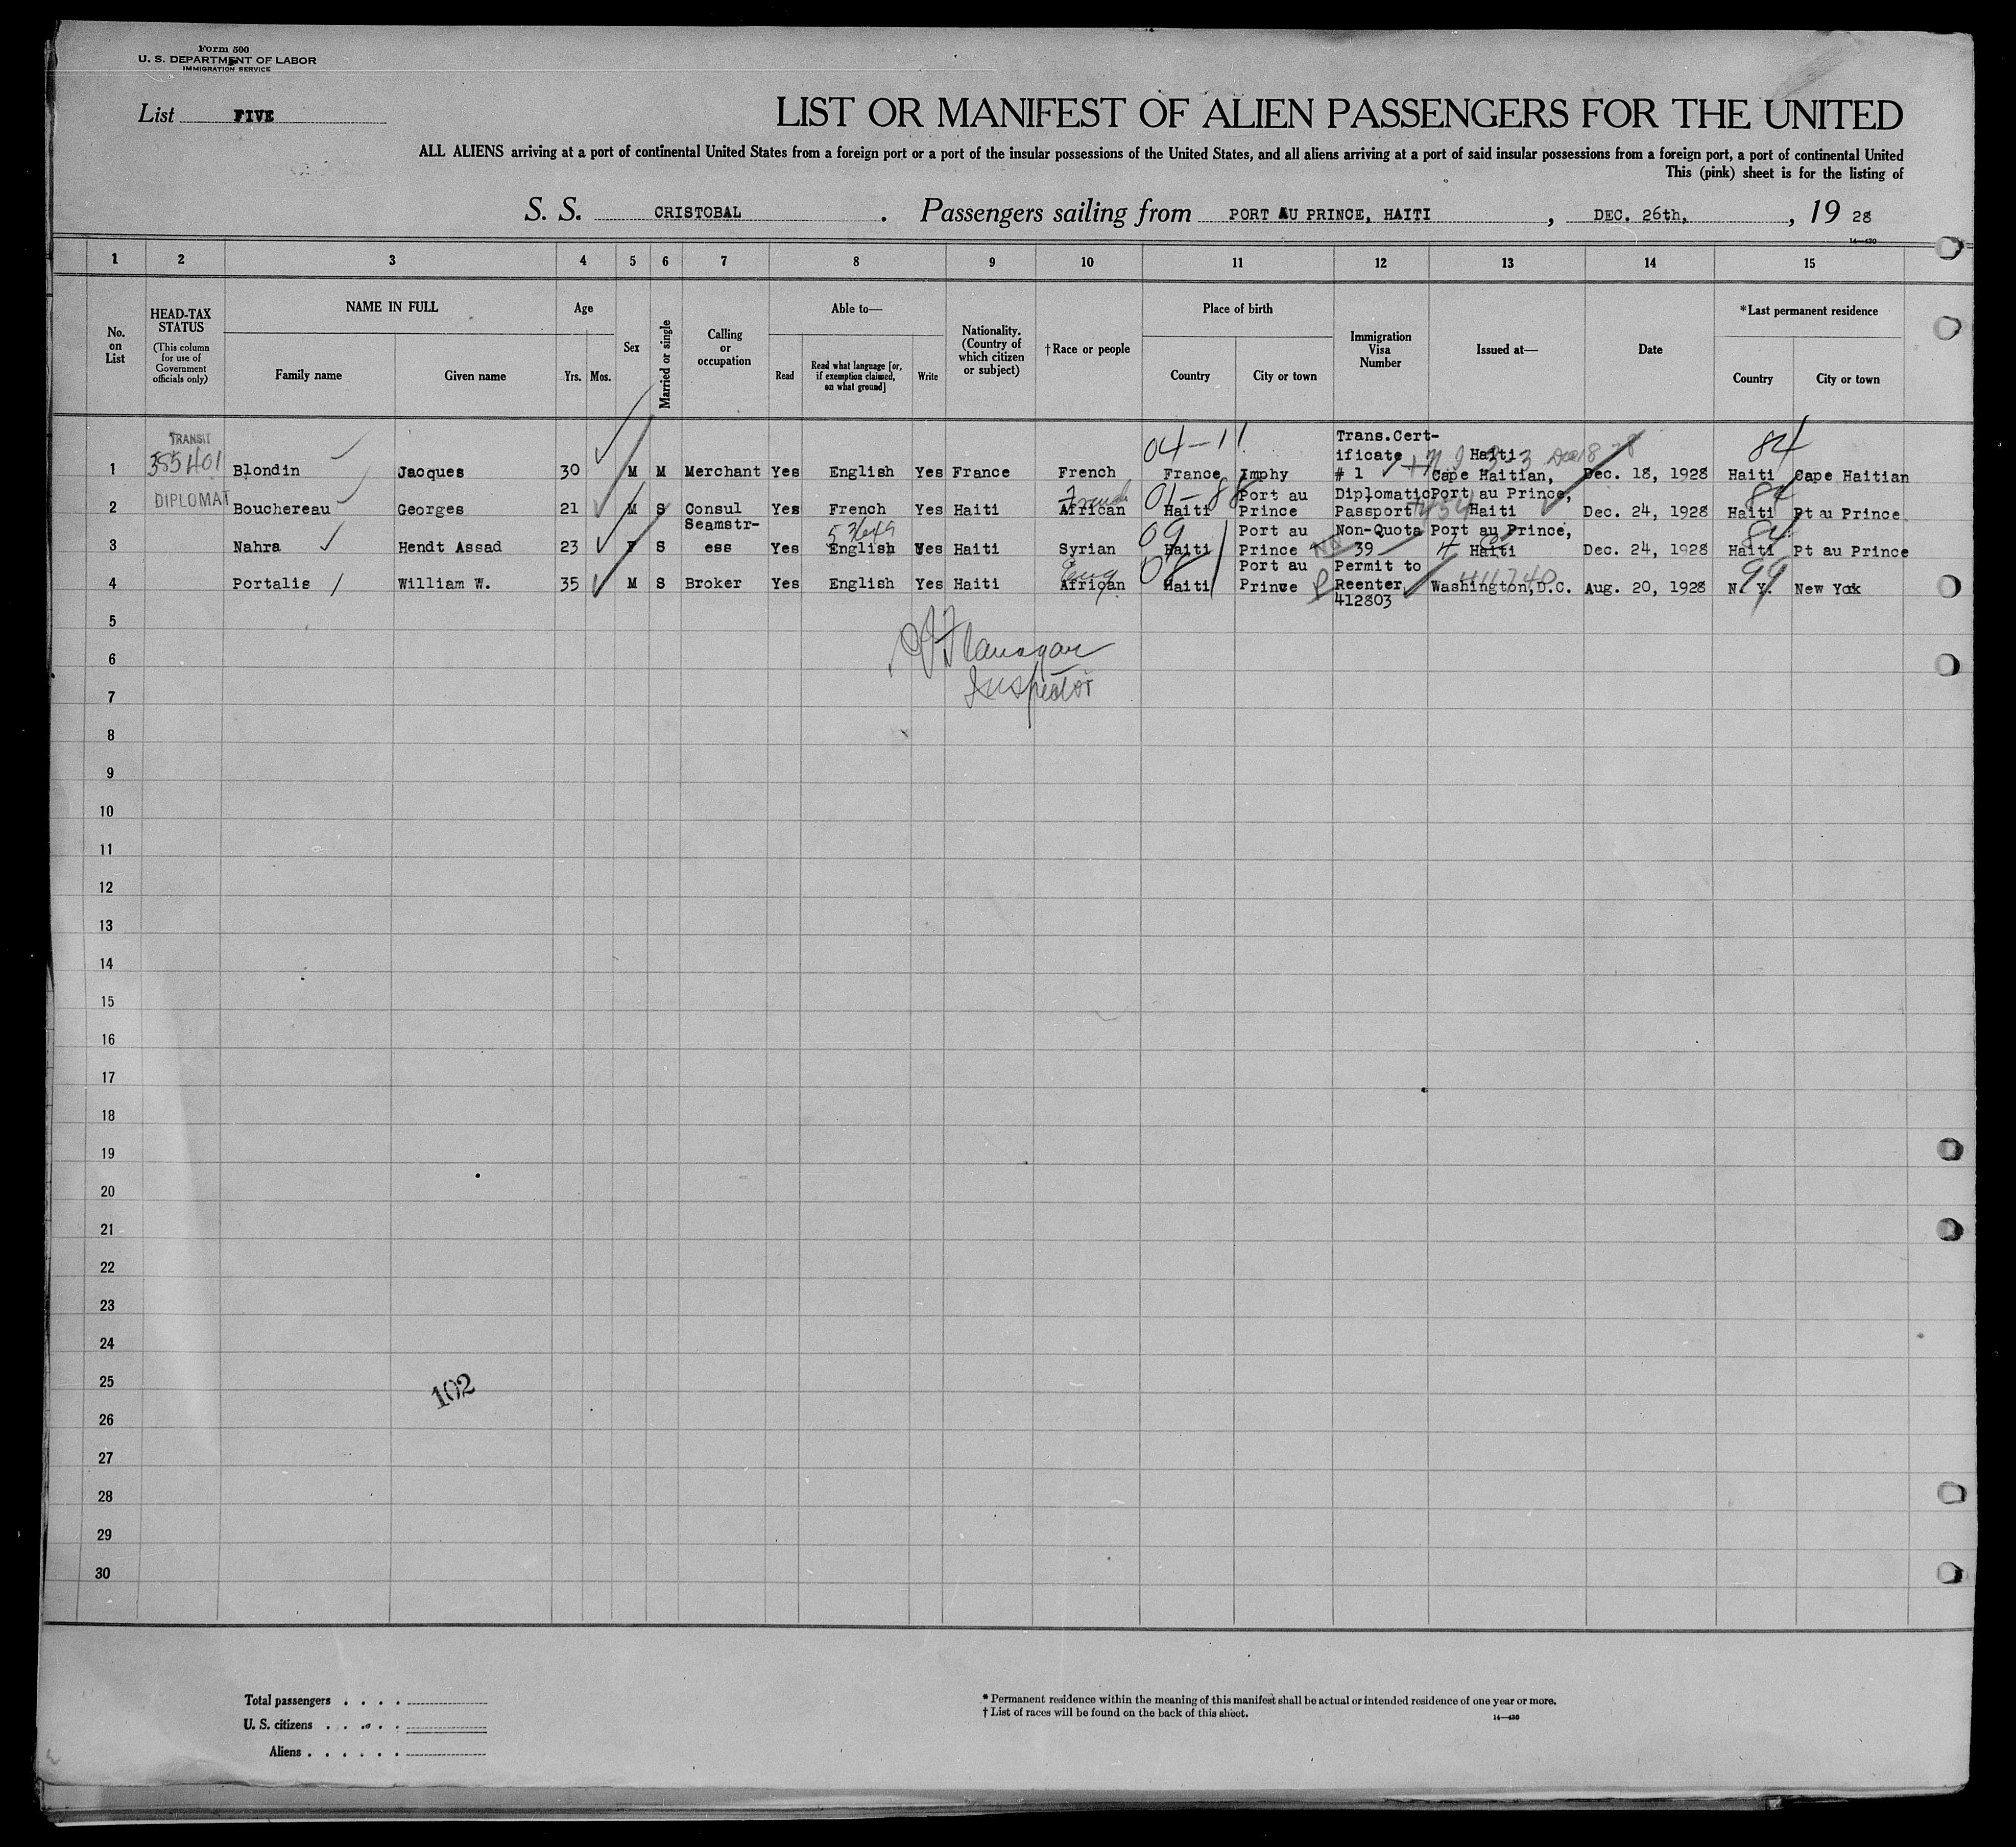 Form 500
U. S. DEPARTMENT OF LABOR
IMMIGRATION SERVICE
List FIVE
LIST OR MANIFEST OF ALIEN PASSENGERS FOR THE UNITED
ALL ALIENS arriving at a port of continental United States from a foreign port or a port of the insular possessions of the United States, and all aliens arriving at a port of said insular possessions from a foreign port, a port of continental United
This (pink) sheet is for the listing of
S. S. CRISTOBAL . Passengers sailing from PORT AU PRINCE, HAITI , DEC. 26th, , 19 28
14—430
1 2 3 4 5 6 7 8 9 10 11 12 13 14 15
No. on List
HEAD-TAX STATUS
(This column for use of Government officials only)
NAME IN FULL
Family name Given name
Age
Yrs. Mos.
Sex
Married or single
Calling or occupation
Able to—
Read Read what language [or, if exemption claimed, on what ground] Write
Nationality. (Country of which citizen or subject)
†Race or people
Place of birth
Country City or town
Immigration Visa Number
Issued at—
Date
*Last permanent residence
Country City or town
TRANSIT 04-11 Trans.Cert- 84
385401 ificate Haiti
1 Blondin Jacques 30 M M Merchant Yes English Yes France French France Imphy # 1 Cape Haitian, Dec. 18, 1928 Haiti Cape Haitian
DIPLOMAT French 01-88 Port au Diplomatic Port au Prince, 84
2 Bouchereau Georges 21 M S Consul Yes French Yes Haiti African Haiti Prince Passport Haiti Dec. 24, 1928 Haiti Pt au Prince
Seamstr- 09 Port au Non-Quota Port au Prince, 84
3 Nahra Hendt Assad 23 F S ess Yes English Yes Haiti Syrian Haiti Prince 39 Haiti Dec. 24, 1928 Haiti Pt au Prince
Eng Port au Permit to 411740 99
4 Portalis William W. 35 M S Broker Yes English Yes Haiti African Haiti Prince Reenter Washington,D.C. Aug. 20, 1928 N. Y. New York
412803
5
Flanagan
6
Inspector
7
8
9
10
11
12
13
14
15
16
17
18
19
20
21
22
23
24
25
102
26
27
28
29
30
Total passengers . . . .
U. S. citizens . . . . .
Aliens . . . . . .
* Permanent residence within the meaning of this manifest shall be actual or intended residence of one year or more.
† List of races will be found on the back of this sheet.
14—430